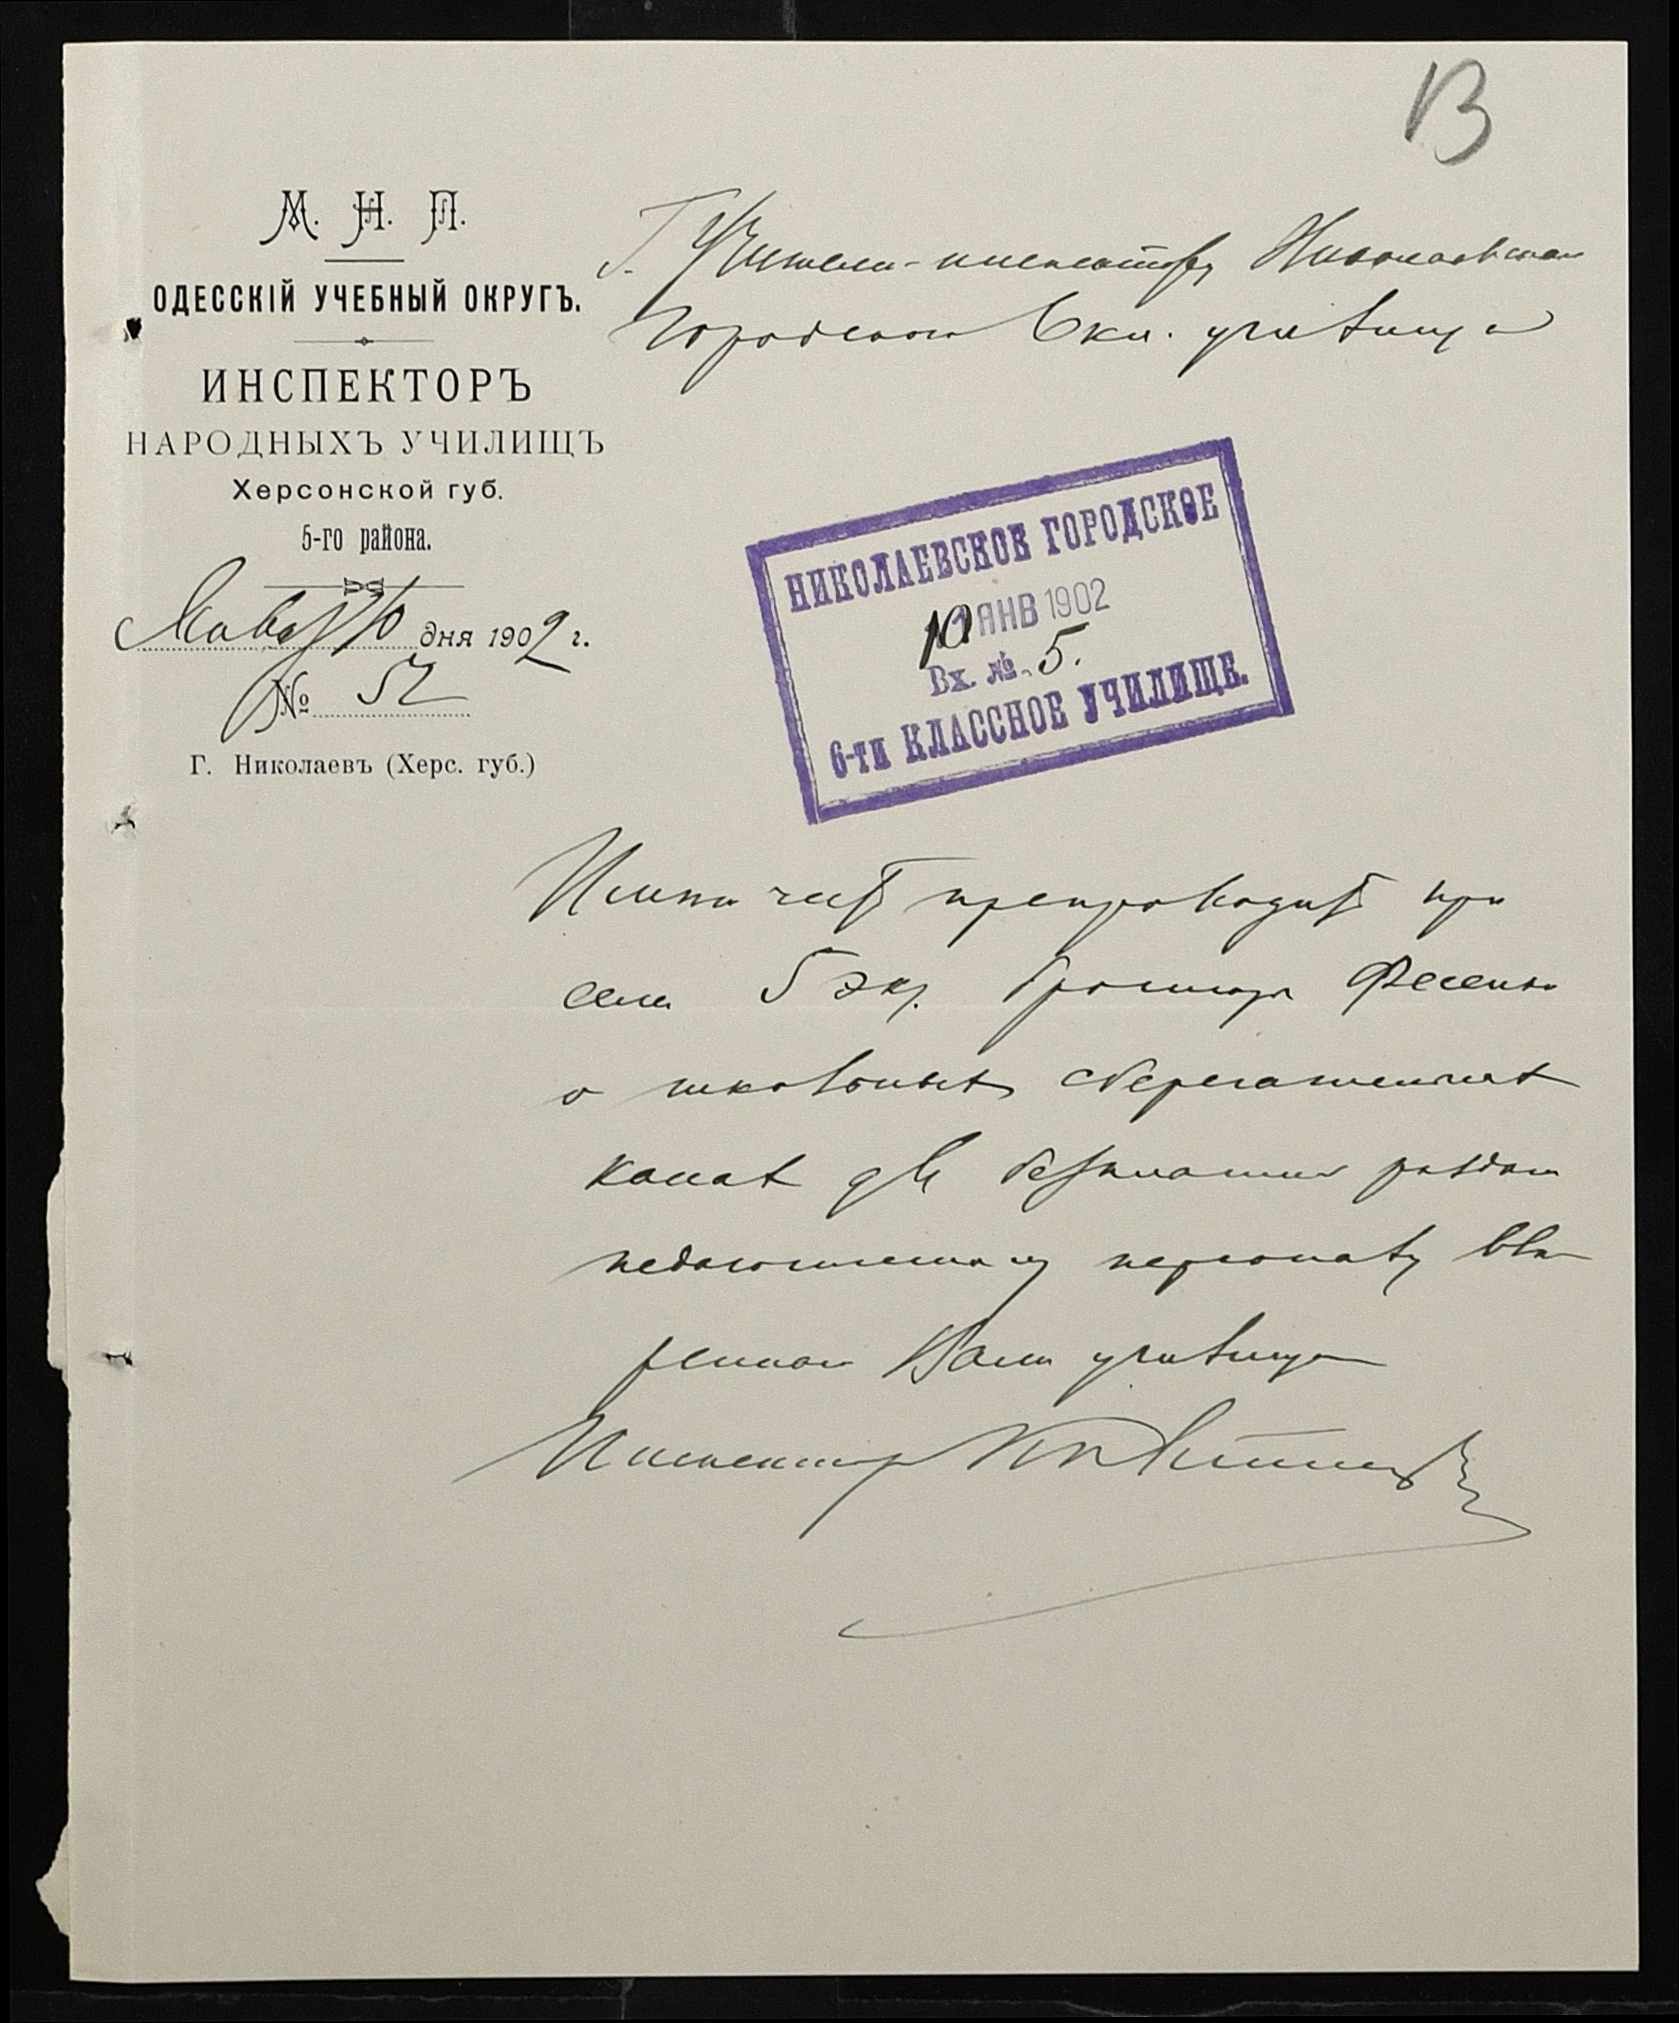 13
М. Н. П.
ОДЕССКІЙ УЧЕБНЫЙ ОКРУГЪ.
ИНСПЕКТОРЪ
НАРОДНЫХЪ УЧИЛИЩЪ
Херсонской губ.
5-го района.
Января 10 дня 1902 г.
№ 52
Г. Николаевъ (Херс. губ.)
Г. Учителю-инспектору Николаевскаго
Городского 6 кл. училища
НИКОЛАЕВСКОЕ ГОРОДСКОЕ
10 ЯНВ 1902
Вх. № 5.
6-ти КЛАССНОЕ УЧИЛИЩЕ.
Имѣю честь препроводить при
семъ 5 экз. брошюры Фесенко
о школьныхъ сберегательныхъ
кассахъ для безплатной раздачи
педагогическому персоналу ввѣ-
реннаго Вамъ училища
Инспекторъ